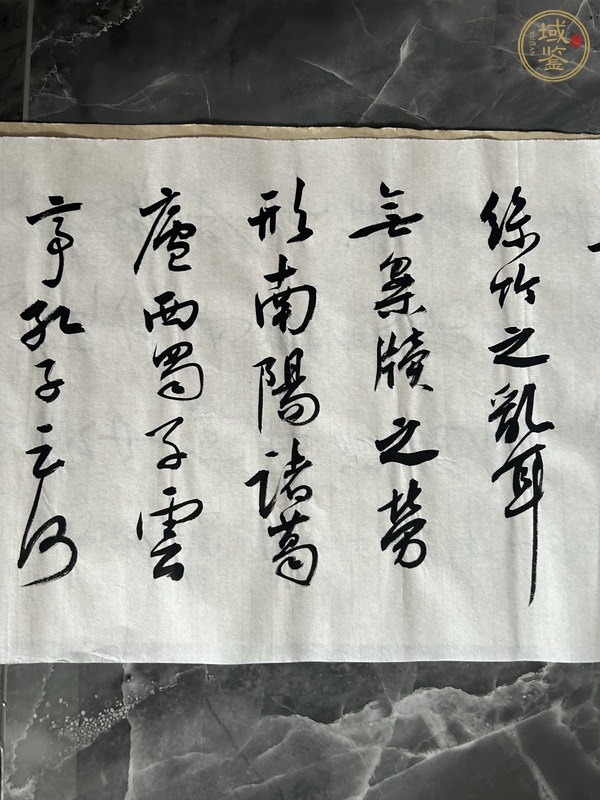 絲竹之亂耳
無案牘之勞
形南陽諸葛
廬西蜀子雲
亭孔子云何
域鉴